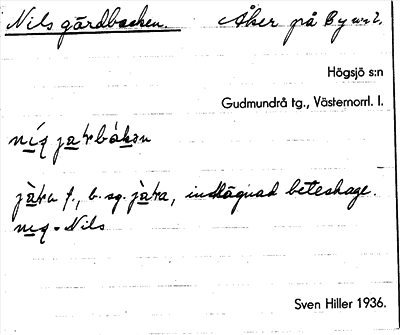 Nils gårdbacken. Åker på By nr 2.
Högsjö s:n
Gudmundrå tg., Västernorrl. l.
jàra f., b. sg. jàra, inhägnad beteshage.
= Nils
Sven Hiller 1936.